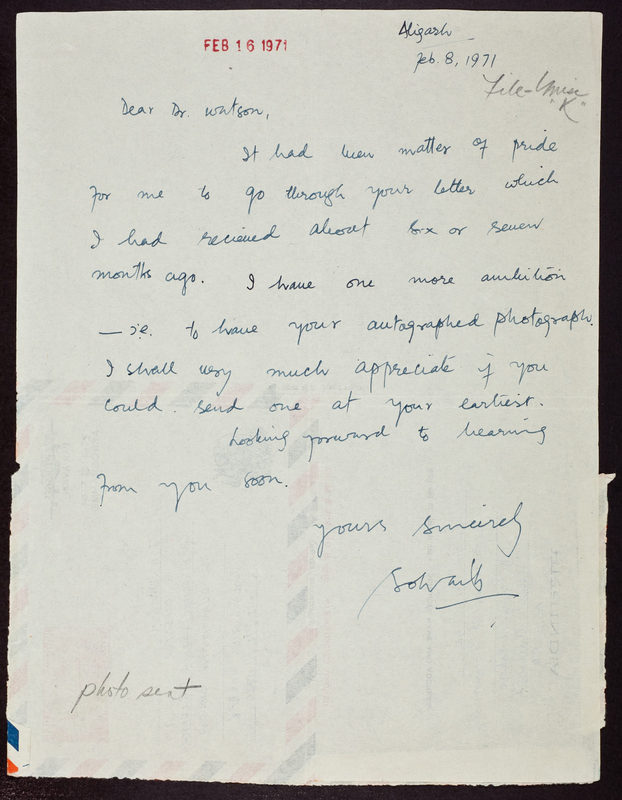 FEB 16 1971
Aligarh
Feb. 8, 1971
File - Misc
"K"
Dear Dr. Watson,
It had been matter of pride
for me to go through your letter which
I had recieved about six or seven
months ago. I have one more ambition
— i.e. to have your autographed photograph.
I shall very much appreciate if you
could send one at your earliest.
Looking forward to hearing
from you soon.
Yours sincerely
photo sent